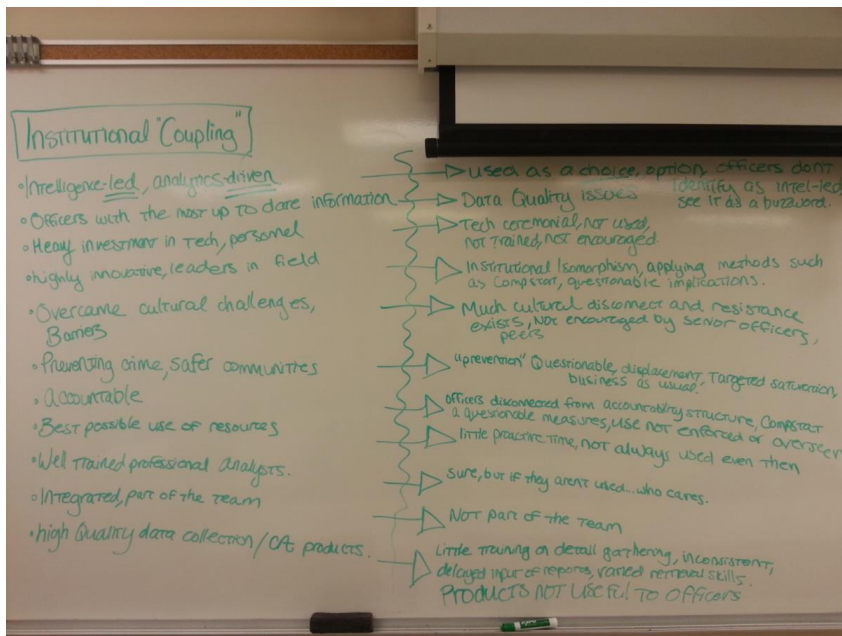 Institutional "Coupling"
• Intelligence-led, analytics-driven
• Officers with the most up to date information
• Heavy investment in Tech, personel
• highly innovative, leaders in field
• Overcame cultural challenges,
Barriers
• Preventing crime, safer communities
• accountable
• Best possible use of resources
• Well trained professional analysts.
• Integrated, part of the team
• high Quality data collection / CA products.
used as a choice, option, officers dont
identify as intel-led
see it as a buzzword.
Data Quality issues
Tech ceremonial, not used,
not trained, not encouraged.
Institutional Isomorphism, applying methods such
as Compstat, questionable implications.
Much cultural disconnect and resistance
exists, Not encouraged by senior officers,
peers
"prevention" Questionable, displacement, Targeted saturation,
business as usual.
officers disconnected from accountability structure, Compstat
a questionable measures, use not enforced or overseen
little proactive time, not always used even then
sure, but if they arent used... who cares.
Not part of the team
Little training on detail gathering, inconsistent,
delayed input of reports, varied retrieval skills.
Products not useful to officers